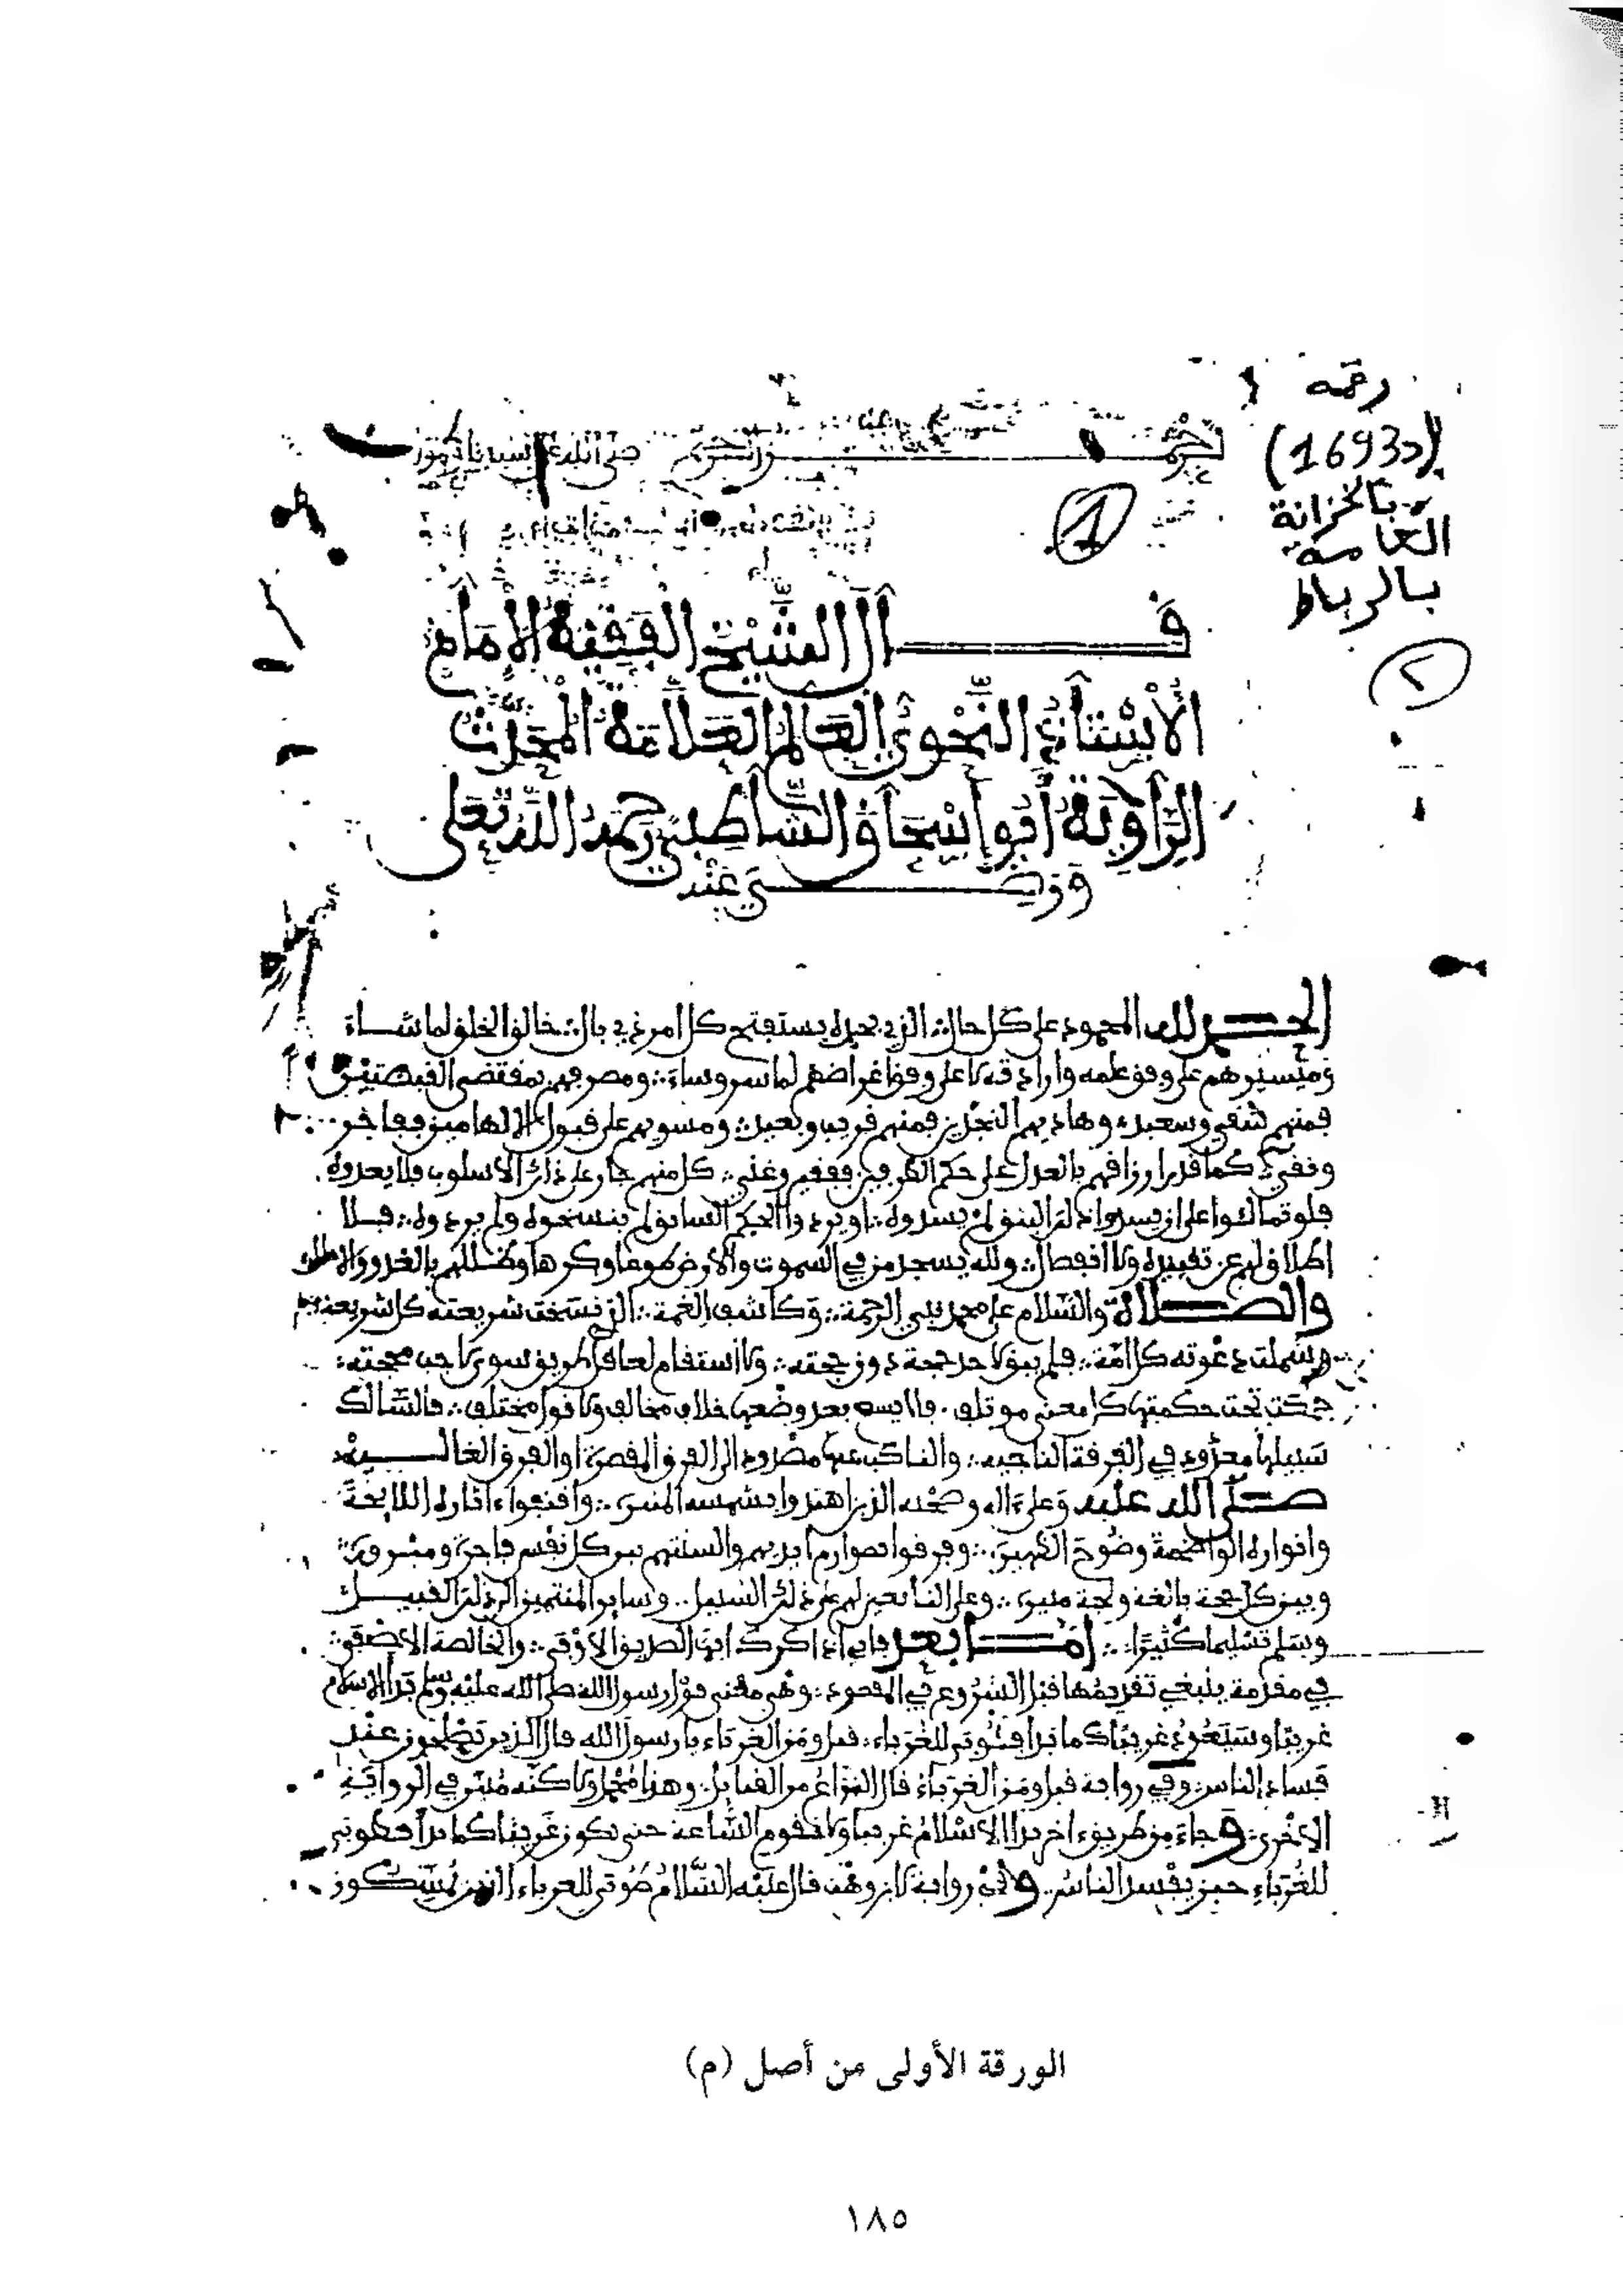 رقمه
(1693د)
بالخزانة
العامة
بالرباط
الرحمن الرحيم صلى الله على سيدنا
1
قال الشيخ الفقيه الإمام
٢
الأستاذ النحوي العالم العلامة المحدث
الراوية أبو إسحاق الشاطبي رحمه الله تعلى
ورضي عنه
الحمد لله المحمود على كل حال الذي بحمده يستفتح كل امر ذي بال خالق الخلق لما شاء
وميسرهم على وفق علمه وارادته لا على وفق اغراضهم لما سر وساء ومصرفهم بمقتضى القبضتين
فمنهم شقي وسعيد وهاديهم النجدين فمنهم قريب وبعيد ومسويهم على قبول الالهامين ففاجر
وتقي كما قدر ارزاقهم بالعدل على حكم الطرفين ففقير وغني كل منهم جار على ذلك الاسلوب فلا يعدوه
فلو تمالئوا على ان يسدوا ذلك البثق لم يسدوه او يردوا الحكم السابق لم ينسخوه ولم يردوه فلا
اطلاق لهم عن تقييده ولا انفصال ولله يسجد من في السموت والأرض طوعا وكرها وظللهم بالغدو والاصال
والصلاة والسلام على محمد نبي الرحمة وكاشف الغمة الذي نسخت شريعته كل شريعة
وشملت دعوته كل امة فلم يبق لاحد حجة دون حجته ولا استقام لعاقل طريق سوى لاحب محجته
جمعت تحت حكمتها كل معنى موتلف فلا يسمع بعد وضعها خلاف مخالف ولا قول مختلف فالسالك
سبيلها معدود في الفرقة الناجيه والناكب عنها مصدود الى الفرق المقصرة او الفرق الغاليه
صلى الله عليه وعلى ءاله وصحبه الذين اهتدوا بشمسه المنيرة واقتفوا ءاثاره اللائحة
وانواره الواضحة وضوح الظهيرة وفرقوا بصوارم ايديهم والسنتهم بين كل نفس فاجرة ومبرورة
وبين كل حجة بالغة وحجة مبيرة وعلى التابعين لهم على ذلك السبيل وسائر المنتمين الى ذلك القبيل
وسلم تسليما كثيرا أما بعد فاني اذاكرك ايها الصديق الاوفى والخالصة الاصفى
في مقدمة ينبغي تقديمها قبل الشروع في المقصود وهي معنى قول رسول الله صلى الله عليه وسلم بدأ الاسلام
غريبا وسيعود غريبا كما بدا فطوبى للغرباء قيل ومن الغرباء يا رسول الله قال الذين يصلحون عند
فساد الناس وفي رواية قيل ومن الغرباء قال النزاع من القبائل وهذا مجمل ولاكنه مبين في الرواية
الاخرى وجاء من طريق ءاخر بدا الاسلام غريبا ولا تقوم الساعة حتى يكون غريبا كما بدأ فطوبى
للغرباء حين يفسد الناس وفي رواية لابن وهب قال عليه السلام طوبى للغرباء الذين يمسكون
الورقة الأولى من أصل (م)
١٨٥